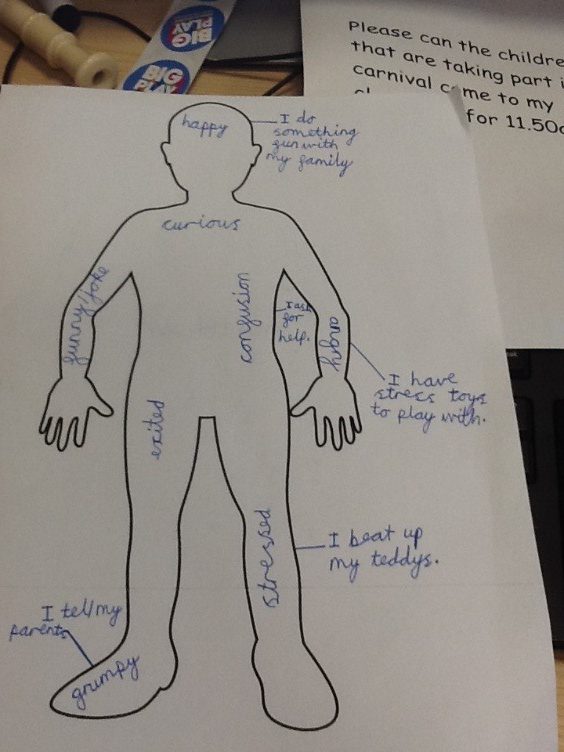 BIG
PLAY
BIG
PLAY
Please can the childre
that are taking part i
carnival c me to my
for 11.50
happy
I do
something
fun with
my family
curious
funny/joke
confusion
I ask
for
help.
angry
I have
stress toys
to play with.
exited
stressed
I beat up
my teddys.
I tell my
parents
grumpy